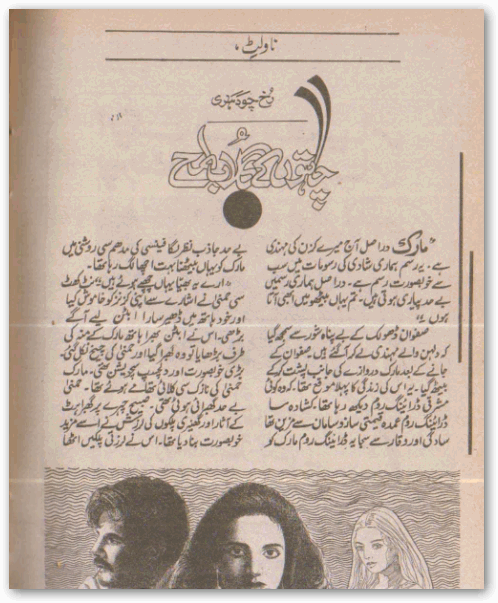 ناولٹ،
رُخ چودھری
چاہتوں کے گلاب
"مارک دراصل آج میرے کزن کی مہندی
ہے۔ یہ رسم ہماری شادی کی رسومات میں سب
سے خوبصورت رسم ہے۔ دراصل ہماری رسمیں
بے حد پیاری ہوتی ہیں۔ تم یہاں بیٹھو میں ابھی آتا
ہوں۔"
صفوان ڈھولک کے بے پناہ شور سے سمجھ گیا
کہ دلہن والے مہندی لے کر آ گئے ہیں۔ صفوان کے
جانے کے بعد مارک دروازے کی جانب پشت کیے
بیٹھ گیا۔ یہ اس کی زندگی کا پہلا موقع تھا۔ کہ وہ کوئی
مشرقی ڈرائینگ روم دیکھ رہا تھا۔ کشادہ سا
ڈرائینگ روم عمدہ قیمتی ساز و سامان سے مزین تھا
سادگی اور وقار سے سجا یہ ڈرائینگ روم مارک کو
بے حد جاذب نظر لگا فینسی کی مدھم سی روشنی میں
مارک کو یہاں بیٹھنا بہت اچھا لگ رہا تھا۔
"ارے یہ بھیا یہاں چھپے بیٹھے ہیں" نٹ کھٹ
سی خمنٰی نے اشارے سے اپنی کزنز کو خاموش کیا
اور خود ہاتھ میں ڈھیر سارا ابٹن لیے آگے
بڑھی۔ اس نے ابٹن بھرا ہاتھ مارک کے منہ کی
طرف بڑھایا تو وہ گھبرا گیا اور خمنٰی کی چیخ نکل گئی۔
بڑی خوبصورت اور دلچسپ سچویشن تھی۔ مارک
خمنٰی کی نازک سی کلائی تھامے ہوئے تھا۔ خمنٰی
بے حد گھبرائی ہوئی تھی۔ صبیح چہرے پر گھبراہٹ
کے آثار اور گھنیری پلکوں کی لرزش نے اسے مزید
خوبصورت بنا دیا تھا۔ اس نے لرزتی پلکیں اٹھا